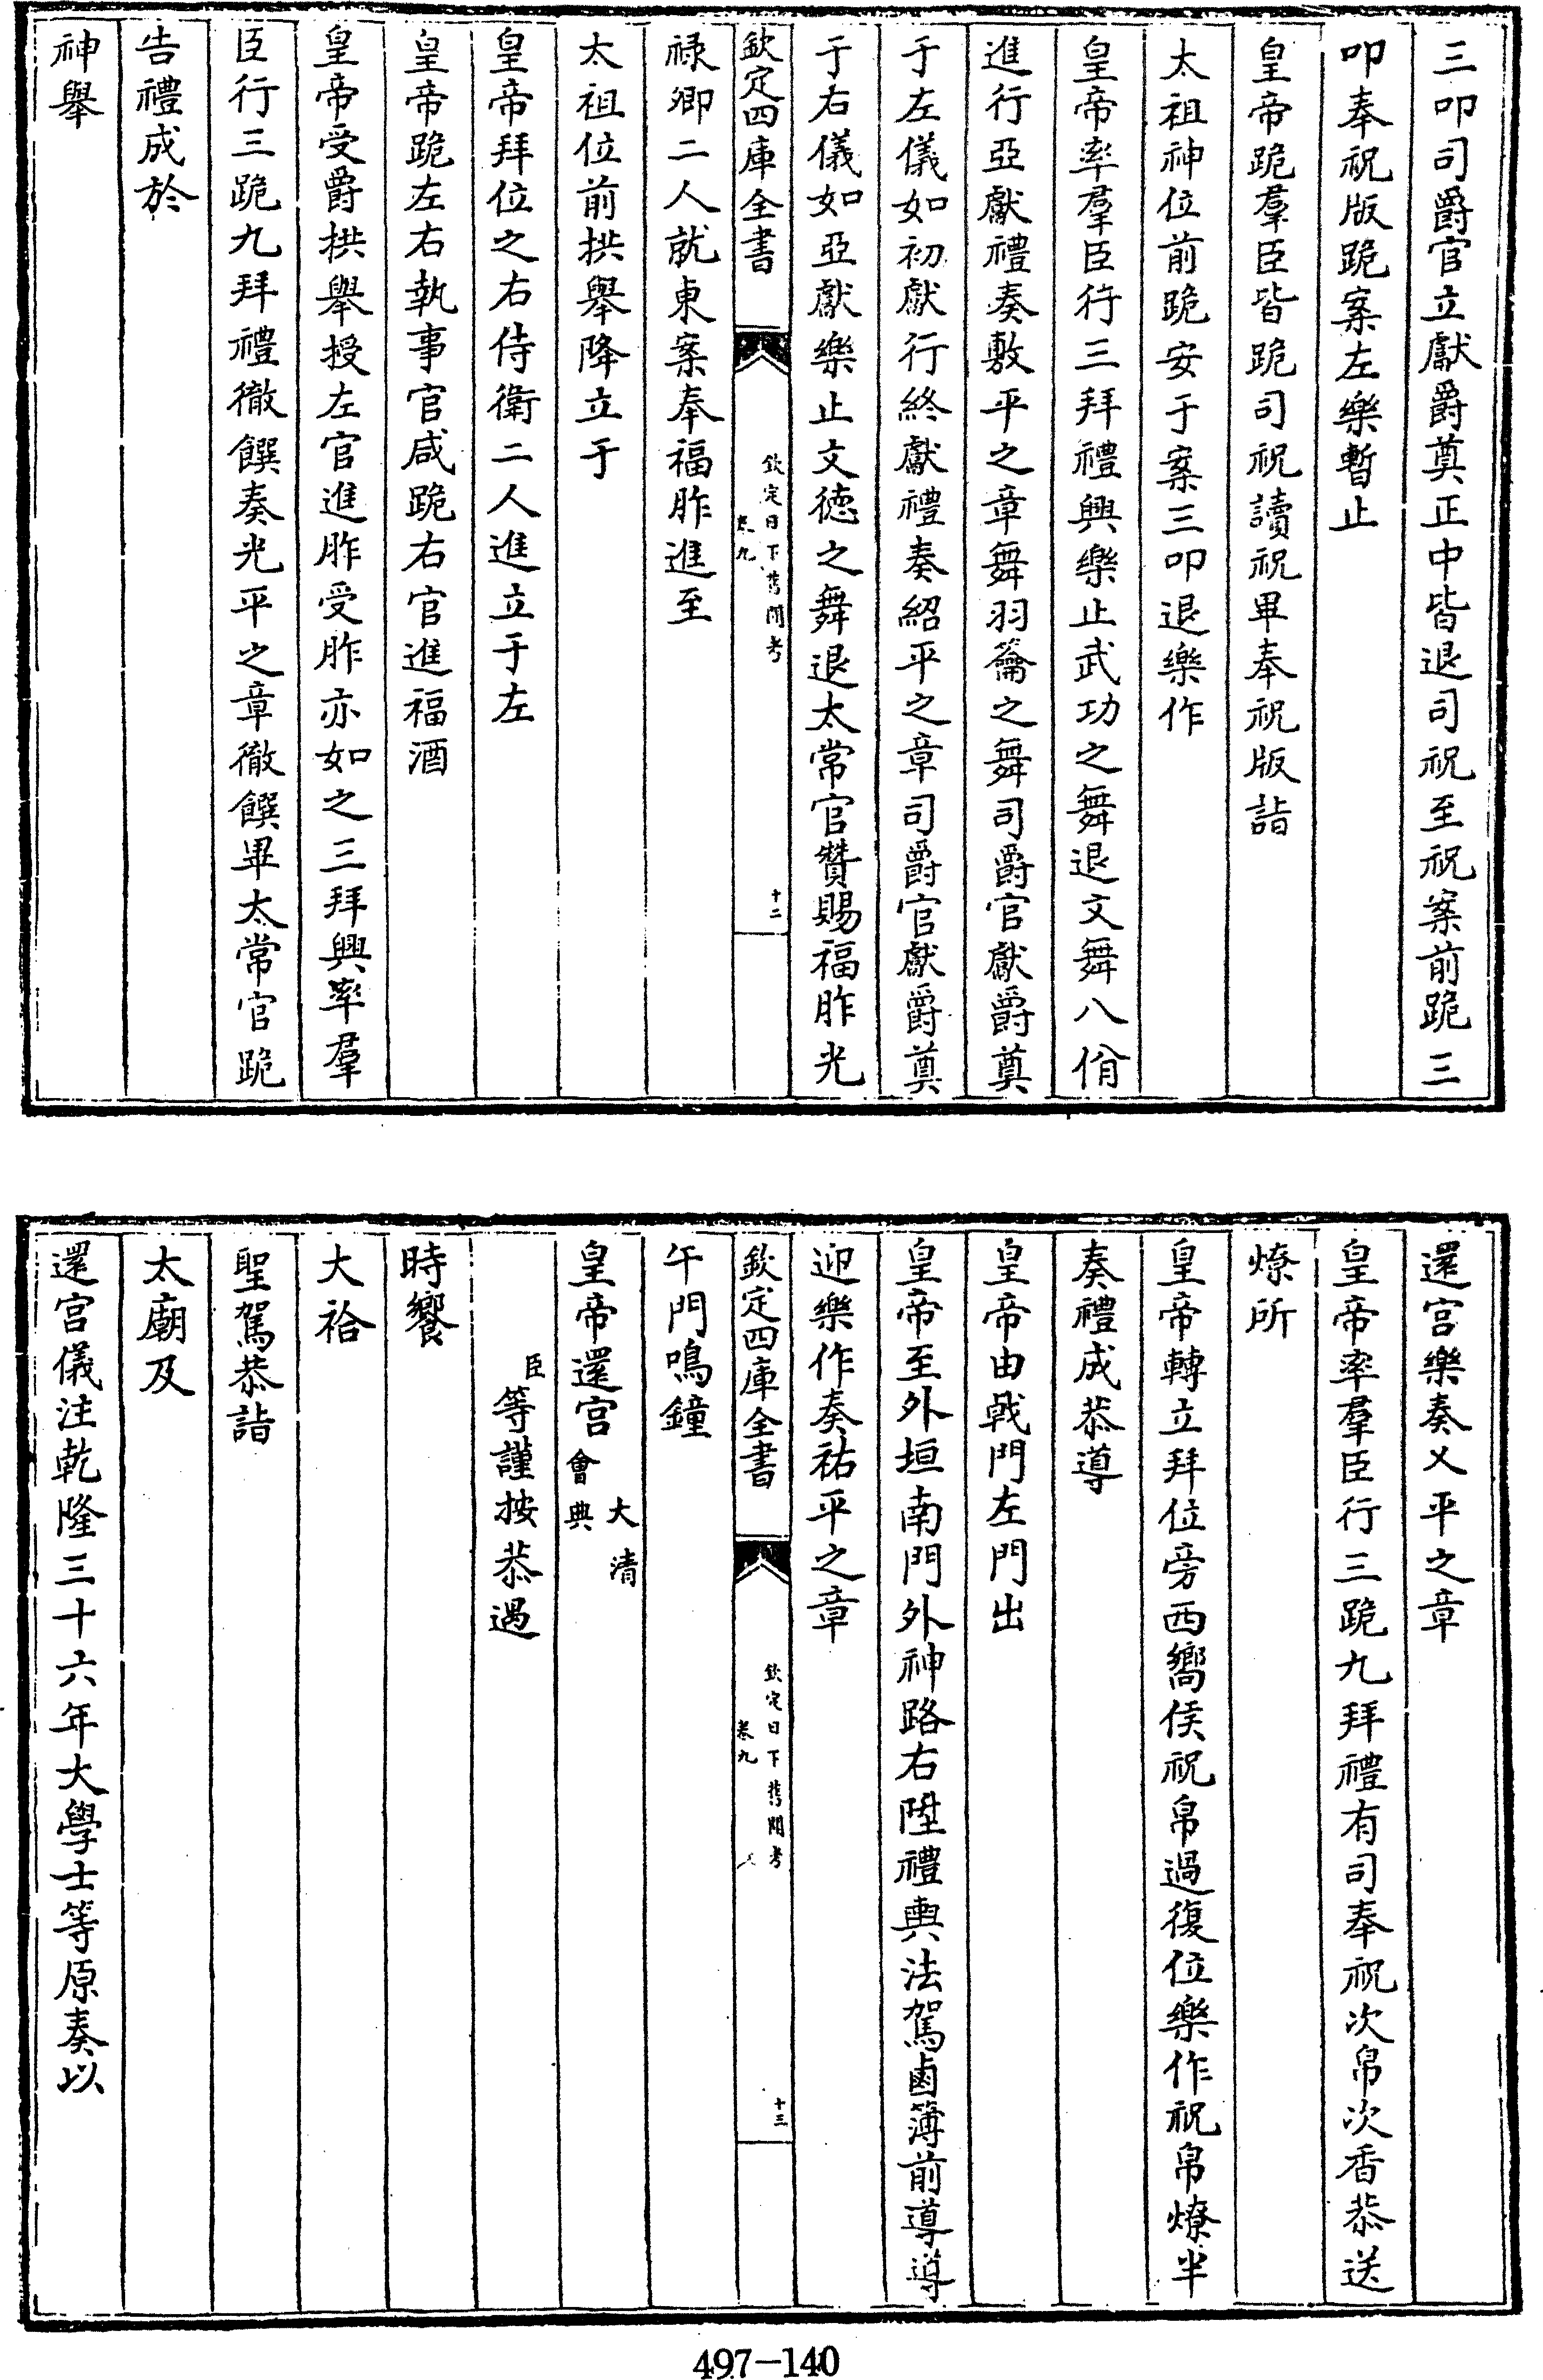 三叩司爵官立獻爵奠正中皆退司祝至祝案前跪三
叩奉祝版跪案左樂暫止
皇帝跪羣臣皆跪司祝讀祝畢奉祝版詣
太祖神位前跪安于案三叩退樂作
皇帝率羣臣行三拜禮興樂止武功之舞退文舞八佾
進行亞獻禮奏敷平之章舞羽籥之舞司爵官獻爵奠
于左儀如初獻行終獻禮奏紹平之章司爵官獻爵奠
于右儀如亞獻樂止文德之舞退太常官贊賜福胙光
欽定四庫全書
欽定日下舊聞考
卷九
十二
禄卿二人就東案奉福胙進至
太祖位前拱舉降立于
皇帝拜位之右侍衛二人進立于左
皇帝跪左右執事官咸跪右官進福酒
皇帝受爵拱舉授左官進胙受胙亦如之三拜興率羣
臣行三跪九拜禮徹饌奏光平之章徹饌畢太常官跪
告禮成於
神舉
還宫樂奏乂平之章
皇帝率羣臣行三跪九拜禮有司奉祝次帛次香恭送
燎所
皇帝轉立拜位旁西嚮俟祝帛過復位樂作祝帛燎半
奏禮成恭導
皇帝由戟門左門出
皇帝至外垣南門外神路右陞禮輿法駕鹵簿前導導
迎樂作奏祐平之章
欽定四庫全書
欽定日下舊聞考
卷九
十三
午門鳴鐘
皇帝還宫大清會典
臣等謹按恭遇
時饗
大祫
聖駕恭詣
太廟及
還宫儀注乾隆三十六年大學士等原奏以
497-140